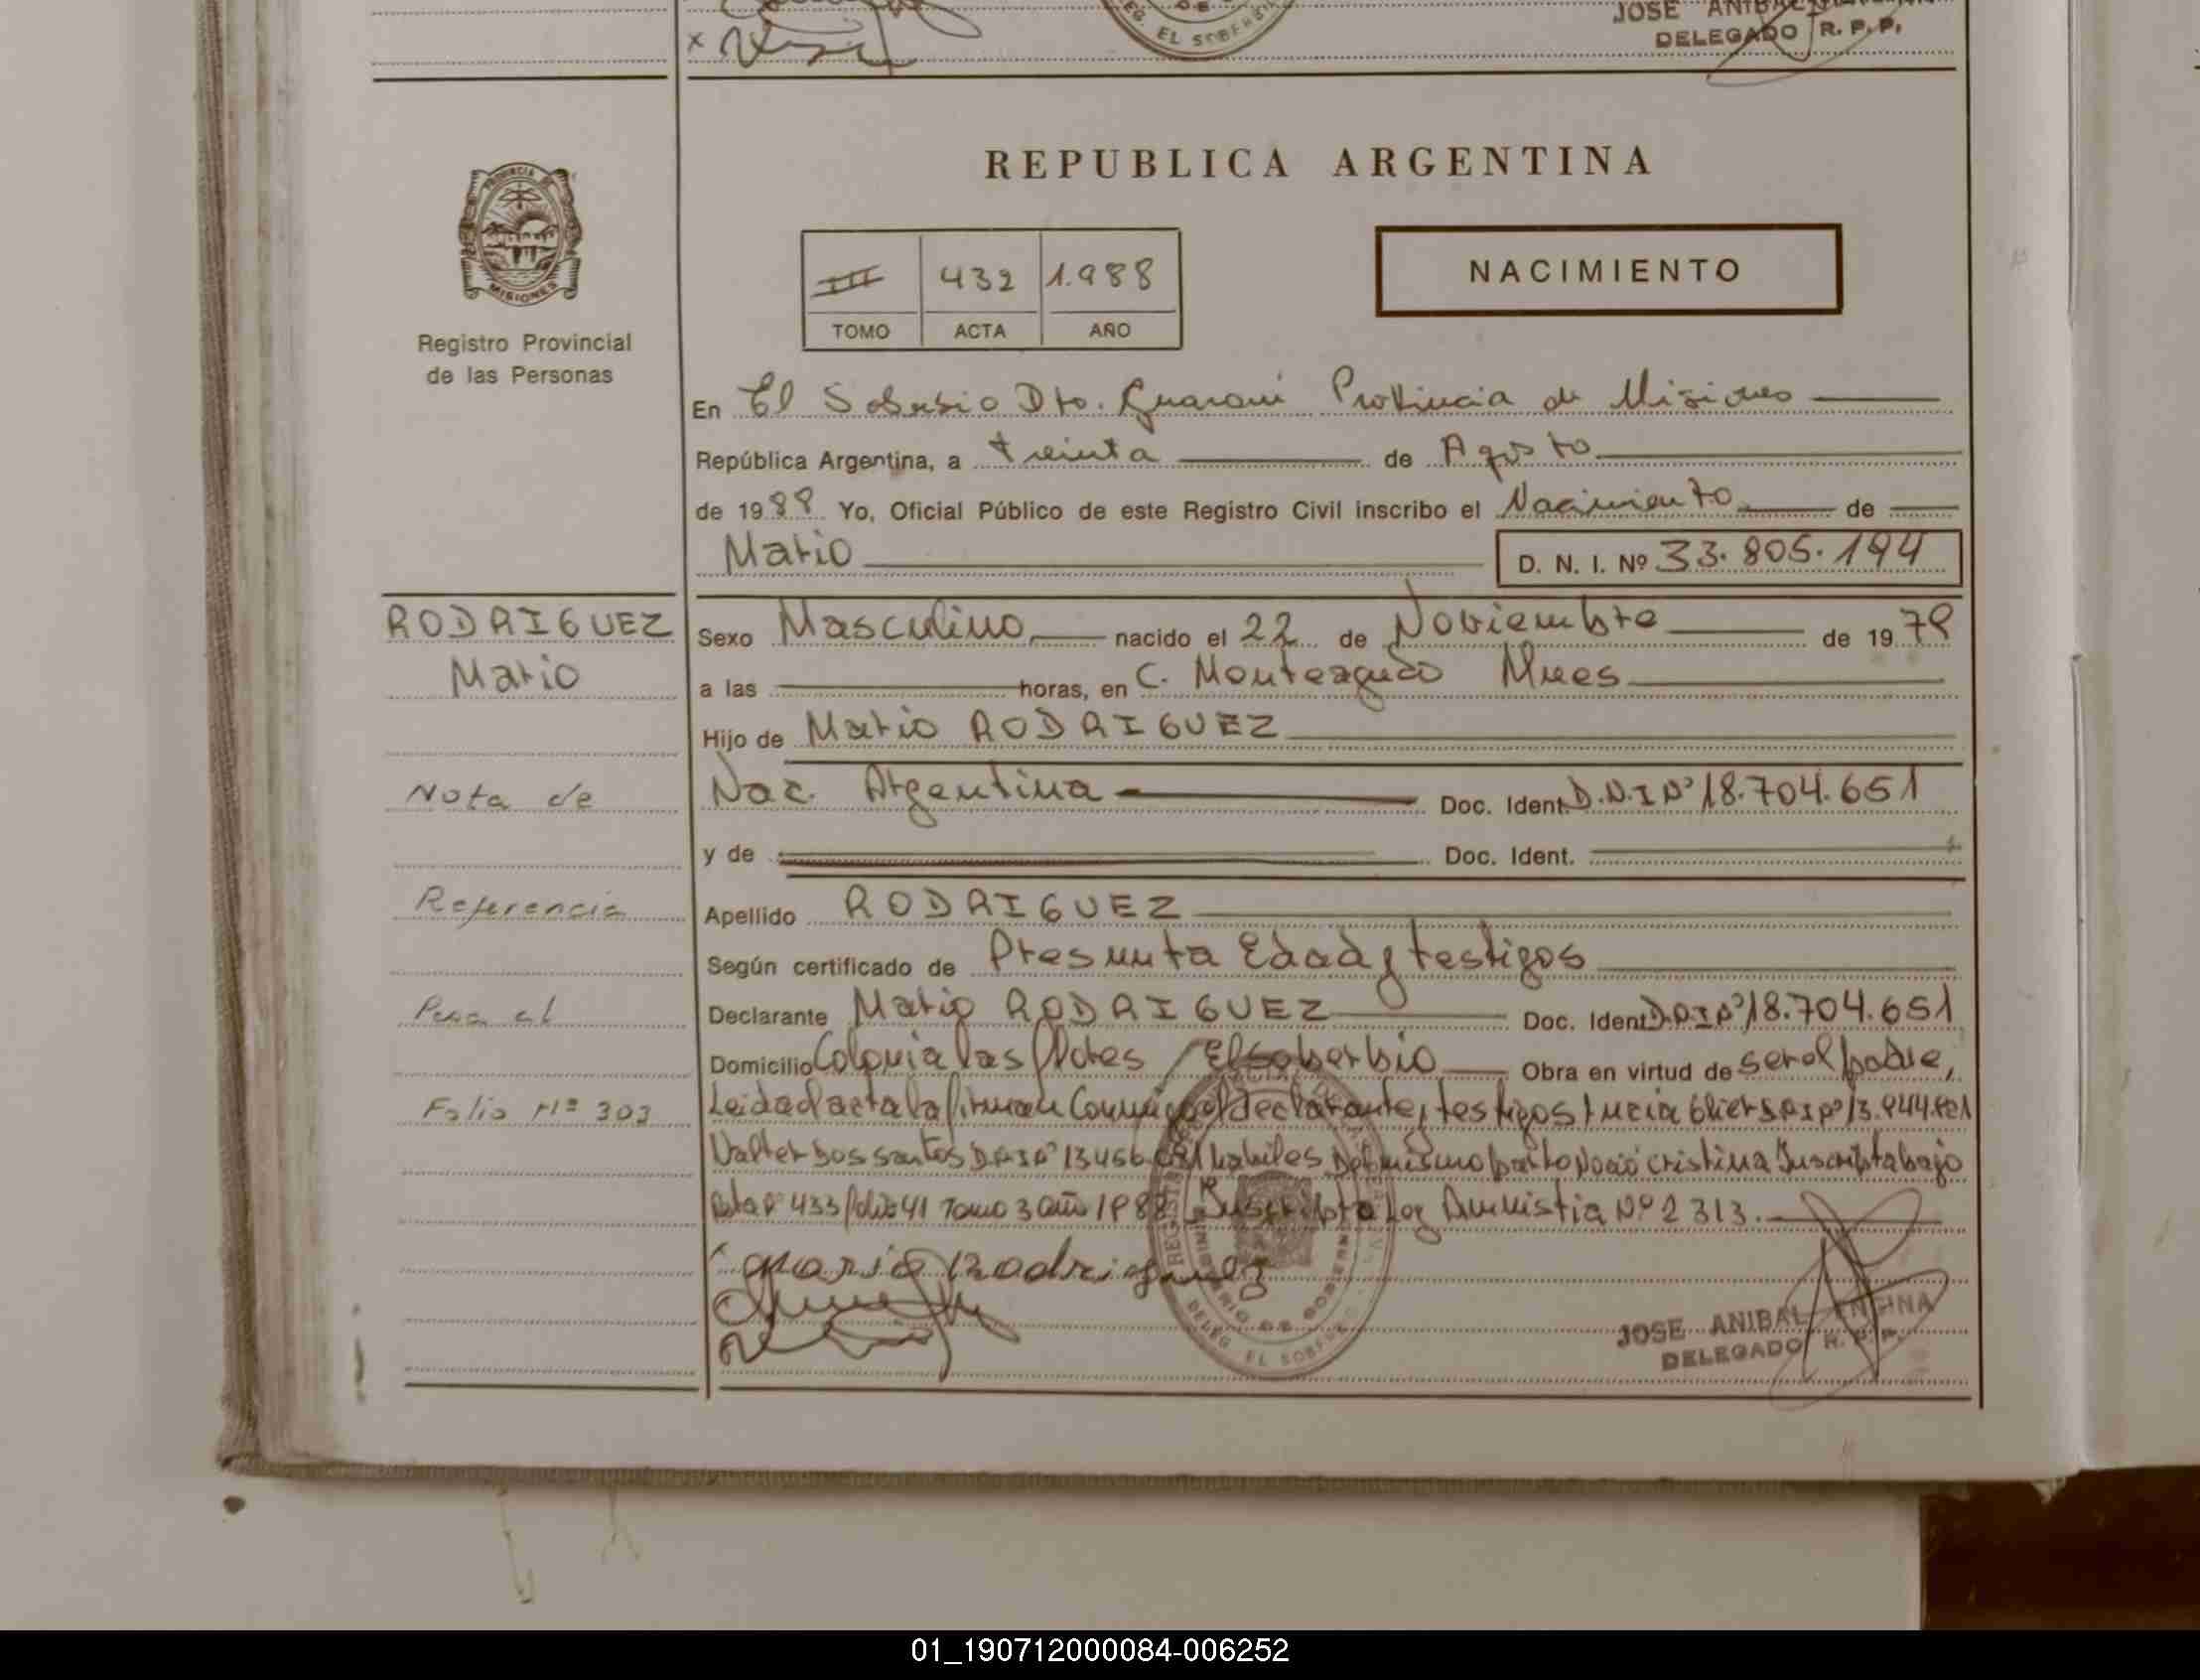 EL SOBERBIO
JOSE ANIBAL
DELEGADO R. P. P.
REPUBLICA ARGENTINA
PROVINCIA DE
MISIONES
Registro Provincial
de las Personas
III 432 1.988
TOMO ACTA AÑO
NACIMIENTO
En El Soberbio Dto. Guaraní Provincia de Misiones
República Argentina, a treinta de Agosto
de 1988 Yo, Oficial Público de este Registro Civil inscribo el Nacimiento de
Mario D. N. I. Nº 33.805.194
RODRIGUEZ
Mario
Sexo Masculino nacido el 22 de Noviembre de 1979
a las horas, en C. Monteagudo Mnes
Hijo de Mario RODRIGUEZ
Nac. Argentina Doc. Ident. D.N.I Nº 18.704.651
y de Doc. Ident.
Apellido RODRIGUEZ
Según certificado de Presunta Edad y testigos
Declarante Mario RODRIGUEZ Doc. Ident D.N.I Nº 18.704.651
Domicilio Colonia las flores / El soberbio Obra en virtud de ser el padre,
Leida el acta la firman Conmigo el declarante, testigos
Valter Dos santos D.N.I Nº 13456 habiles Del mismo parto Nació cristina Inscripta bajo
Acta Nº 433 folio 41 Tomo 3 año 1988 Inscripta Ley Amnistia Nº 2313.
Nota de
Referencia
Pasa al
Folio Nº 303
Mario Rodriguez
JOSE ANIBAL ENCINA
DELEGADO R. P. P.
DELEG. EL SOBERBIO
01_190712000084-006252